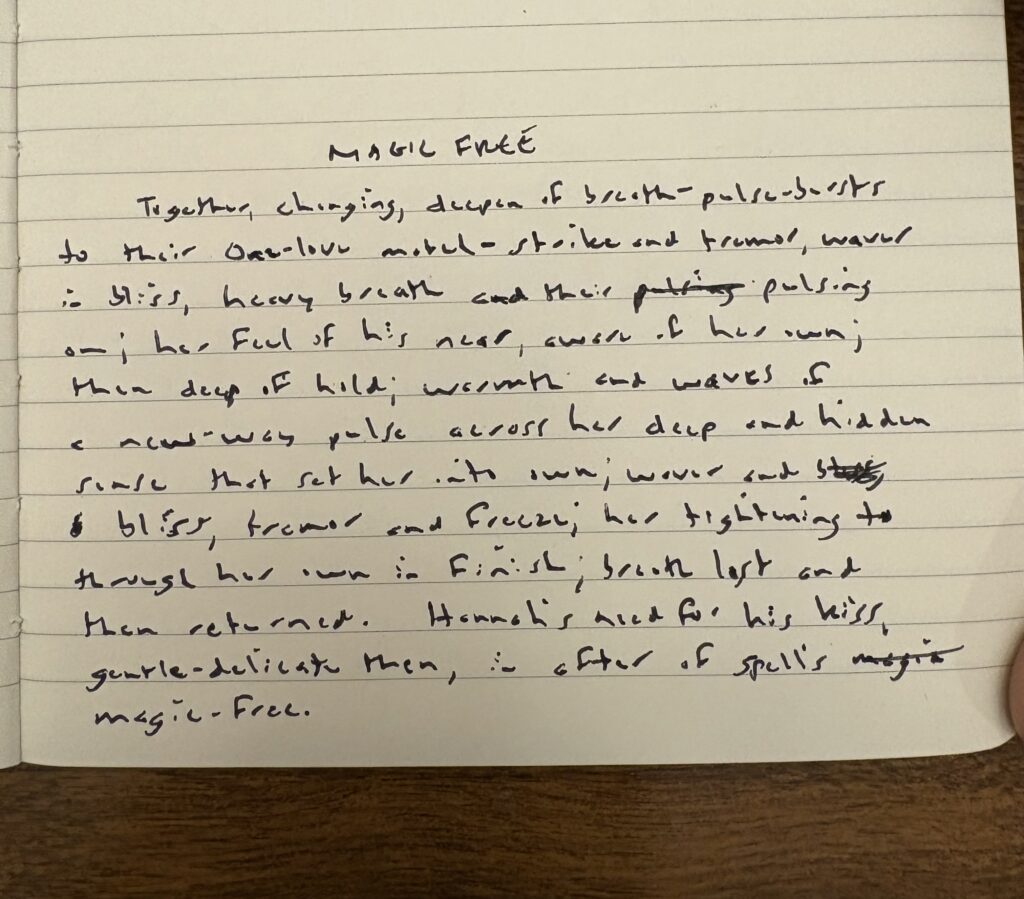 MAGIC FREE
Together, changing, deepen of breath-pulse-bursts
to their One-love motel-strike and tremor, waver
in bliss, heavy breath and their pulsing pulsing
on; her feel of his near, aware of her own;
then deep of hold; warmth and waves of
a new-way pulse across her deep and hidden
sense that set her into own; waver and
bliss, tremor and freeze; her tightening to
through her own in finish; breath lost and
then returned. Hannah's need for his kiss,
gentle-delicate then, in after of spell's magic
magic-free.